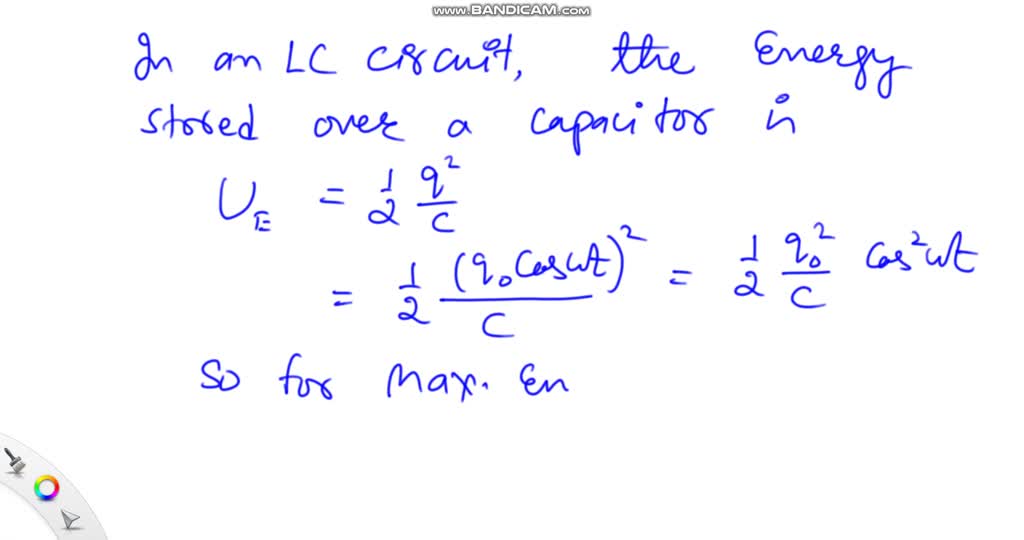 www.BANDICAM.com
In an LC circuit, the Energy
stored over a capacitor is
U_E = 1/2 q²/C
= 1/2 (q₀ cos ωt)²/C = 1/2 q₀²/C cos² ωt
So for Max. En